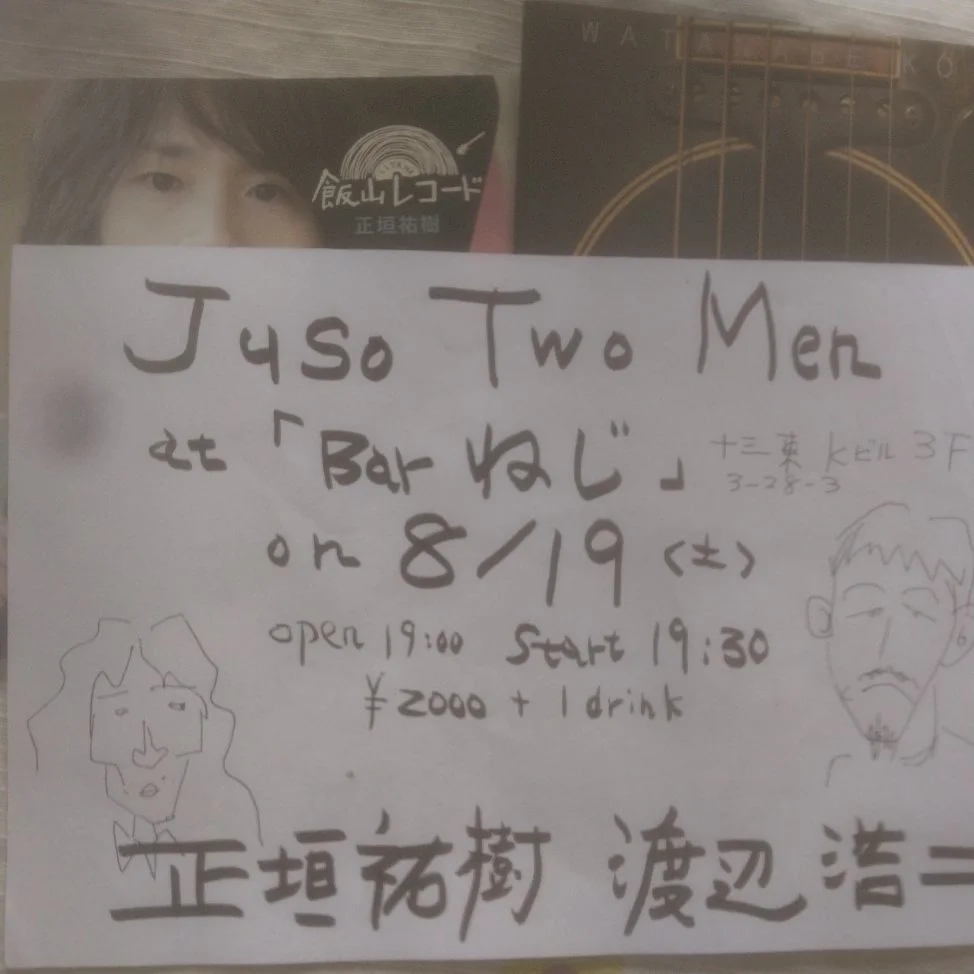 WATANABE KO
飯山レコード
正垣祐樹
Juso Two Men
at「Bar ねじ」
十三東 Kビル 3F
3-28-3
on 8/19〈土〉
open 19:00 Start 19:30
¥2000 + 1 drink
正垣祐樹 渡辺浩二